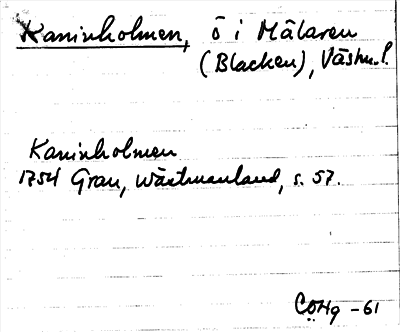 Kaninholmen, ö i Mälaren
(Blacken), Västm. l.
Kaninholmen
1754 Grau, Wästmanland, s. 57.
CÖHg -61